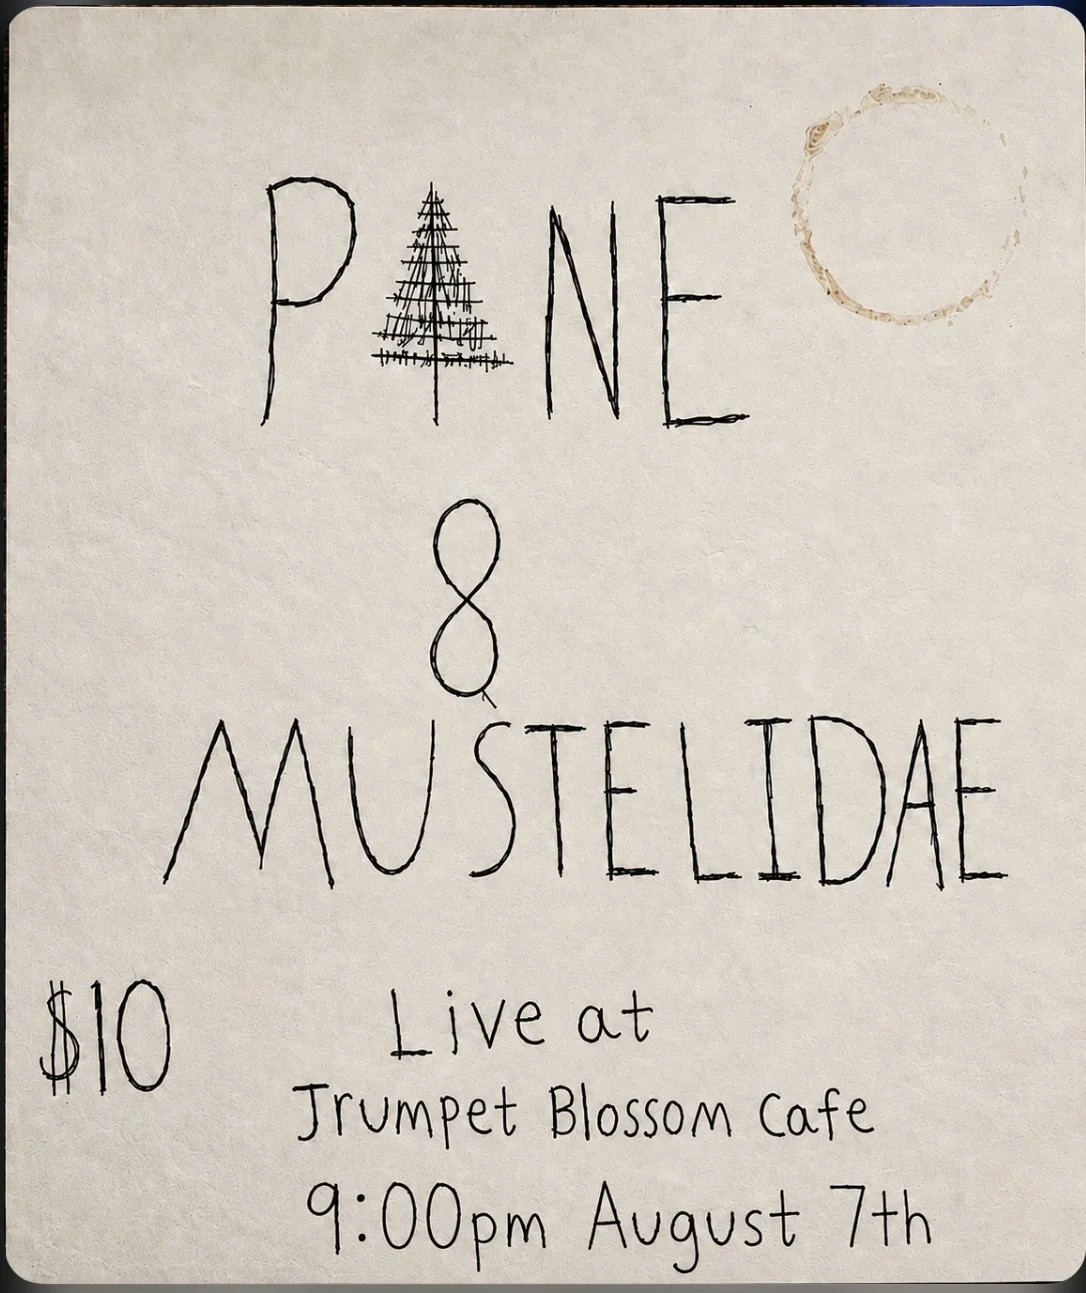 PINE
&
MUSTELIDAE
$10
Live at
Jrumpet Blossom Cafe
9:00pm August 7th